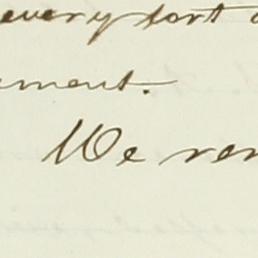 every fort
ment.
We ren